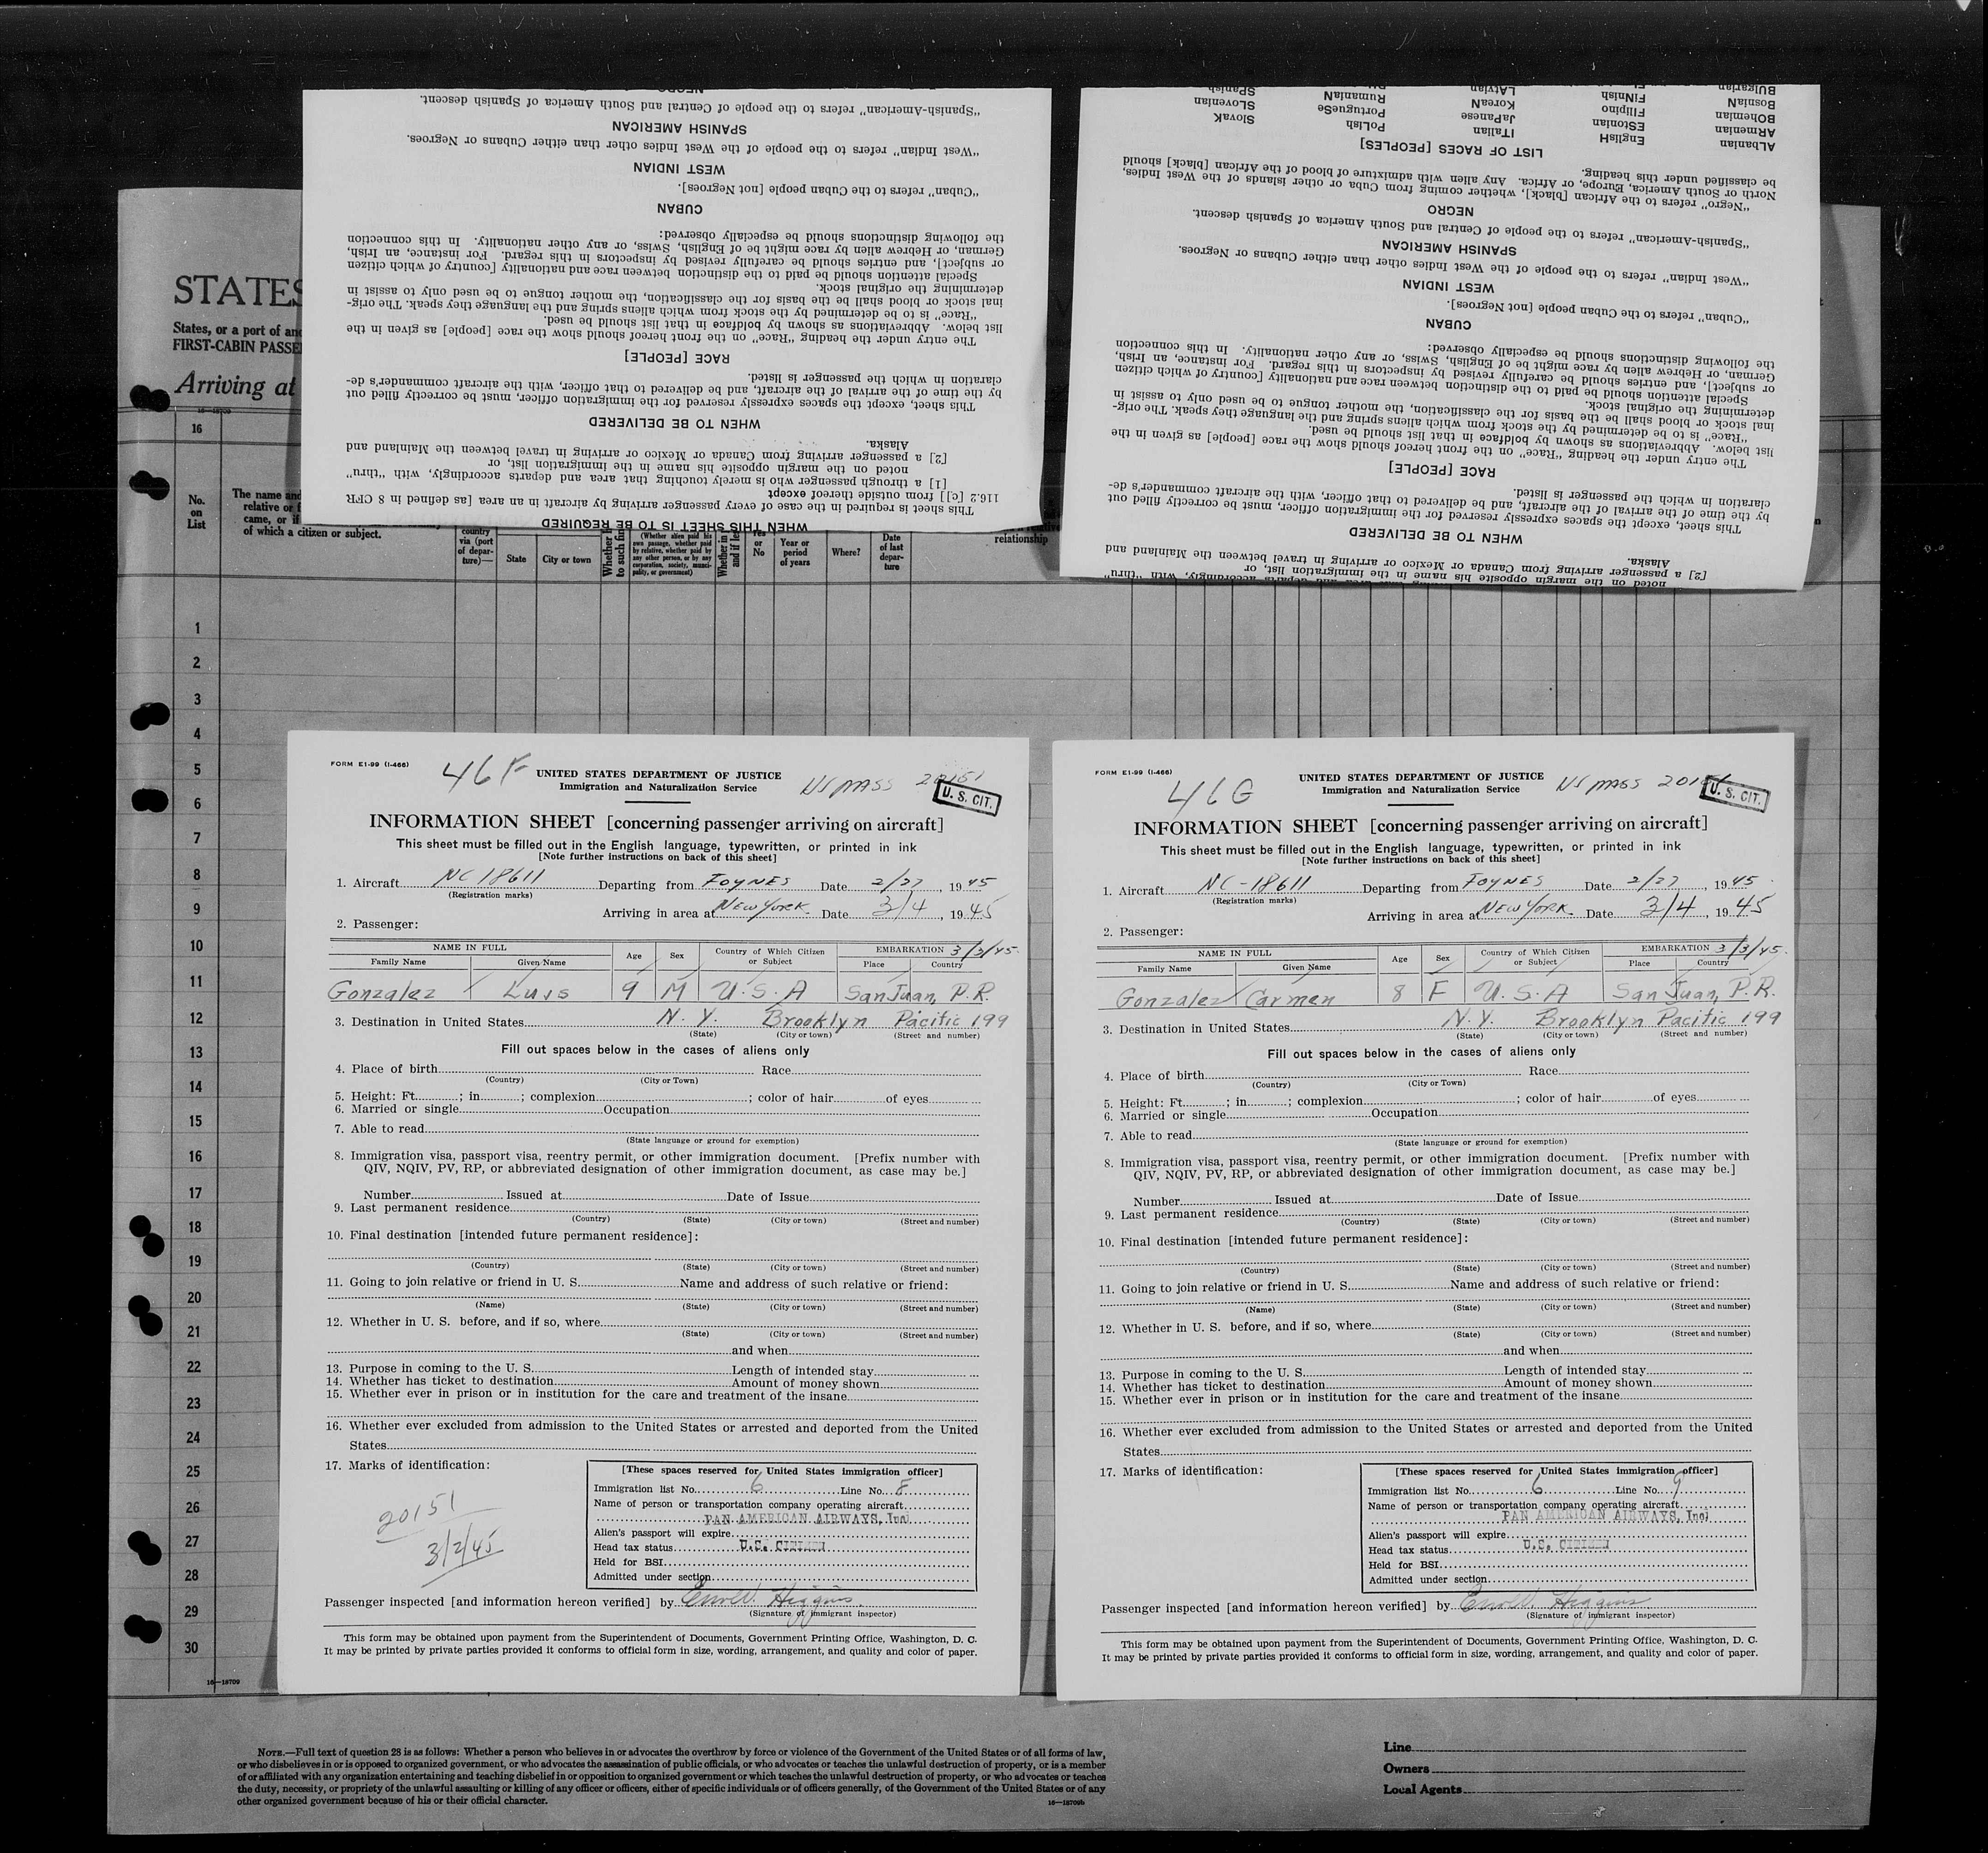 "Spanish-American" refers to the people of Central and South America of Spanish descent.
SPANISH AMERICAN
"West Indian" refers to the people of the West Indies other than either Cubans or Negroes.
WEST INDIAN
"Cuban" refers to the Cuban people [not Negroes].
CUBAN
the following distinctions should be especially observed:
German, or Hebrew alien by race might be of English, Swiss, or any other nationality. In this connection
or subject], and entries should be carefully revised by inspectors in this regard. For instance, an Irish,
Special attention should be paid to the distinction between race and nationality [country of which citizen
determining the original stock.
inal stock or blood shall be the basis for the classification, the mother tongue to be used only to assist in
"Race" is to be determined by the stock from which aliens spring and the language they speak. The orig-
list below. Abbreviations as shown by boldface in that list should be used.
The entry under the heading "Race" on the front hereof should show the race [people] as given in the
RACE [PEOPLE]
claration in which the passenger is listed.
by the time of the arrival of the aircraft, and be delivered to that officer, with the aircraft commander's de-
This sheet, except the spaces expressly reserved for the immigration officer, must be correctly filled out
WHEN TO BE DELIVERED
Alaska.
[2] a passenger arriving from Canada or Mexico or arriving in travel between the Mainland and
noted on the margin opposite his name in the immigration list, or
[1] a through passenger who is merely touching that area and departs accordingly, with "thru"
116.2 [c]] from outside thereof except
This sheet is required in the case of every passenger arriving by aircraft in an area [as defined in 8 CFR
WHEN THIS SHEET IS TO BE REQUIRED
BulgariaN FiNnish LAtvian RumaniaN SPanish
BosniaN Filipino KoreaN PortugueSe SLovenian
BOHemian EStonian JaPanese POLish SlovaK
ARMenian EngliSH ITalian
ALBanian
LIST OF RACES [PEOPLES]
be classified under this heading.
North or South America, Europe, or Africa. Any alien with admixture of blood of the African [black] should
"Negro" refers to the African [black], whether coming from Cuba or other islands of the West Indies,
NEGRO
"Spanish-American" refers to the people of Central and South America of Spanish descent.
SPANISH AMERICAN
"West Indian" refers to the people of the West Indies other than either Cubans or Negroes.
WEST INDIAN
"Cuban" refers to the Cuban people [not Negroes].
CUBAN
the following distinctions should be especially observed:
German, or Hebrew alien by race might be of English, Swiss, or any other nationality. In this connection
or subject], and entries should be carefully revised by inspectors in this regard. For instance, an Irish,
Special attention should be paid to the distinction between race and nationality [country of which citizen
determining the original stock.
inal stock or blood shall be the basis for the classification, the mother tongue to be used only to assist in
"Race" is to be determined by the stock from which aliens spring and the language they speak. The orig-
list below. Abbreviations as shown by boldface in that list should be used.
The entry under the heading "Race" on the front hereof should show the race [people] as given in the
RACE [PEOPLE]
claration in which the passenger is listed.
by the time of the arrival of the aircraft, and be delivered to that officer, with the aircraft commander's de-
This sheet, except the spaces expressly reserved for the immigration officer, must be correctly filled out
WHEN TO BE DELIVERED
Alaska.
[2] a passenger arriving from Canada or Mexico or arriving in travel between the Mainland and
noted on the margin opposite his name in the immigration list, or
STATES
States, or a port of
FIRST-CABIN
Arriving at
16
No. on List
The name and
relative or
came, or if
of which a citizen or subject.
country via (port of depar-ture)—
State
City or town
Whether
to such
(Whether alien paid his own passage, whether paid by relative, whether paid by any other person, or by any corporation, society, munici-pality, or government)
Whether in
and if
Yes or No
Year or period of years
Where?
Date of last depar-ture
relationship
1
2
3
4
5
6
7
8
9
10
11
12
13
14
15
16
17
18
19
20
21
22
23
24
25
26
27
28
29
30
16—18709
FORM E1-99 (I-466)
46F
UNITED STATES DEPARTMENT OF JUSTICE
Immigration and Naturalization Service
US PASS 20151
U. S. CIT.
INFORMATION SHEET [concerning passenger arriving on aircraft]
This sheet must be filled out in the English language, typewritten, or printed in ink
[Note further instructions on back of this sheet]
1. Aircraft NC 18611 Departing from FOYNES Date 2/27, 1945
(Registration marks)
Arriving in area at NEW YORK. Date 3/4, 1945
2. Passenger:
NAME IN FULL Age Sex Country of Which Citizen or Subject EMBARKATION 3/3/45.
Family Name Given Name Place Country
Gonzalez Luis 9 M U.S.A San Juan, P.R.
3. Destination in United States N.Y. Brooklyn Pacific 199
(State) (City or town) (Street and number)
Fill out spaces below in the cases of aliens only
4. Place of birth Race
(Country) (City or Town)
5. Height: Ft. ; in. ; complexion ; color of hair of eyes
6. Married or single Occupation
7. Able to read
(State language or ground for exemption)
8. Immigration visa, passport visa, reentry permit, or other immigration document. [Prefix number with
QIV, NQIV, PV, RP, or abbreviated designation of other immigration document, as case may be.]
Number Issued at Date of Issue
9. Last permanent residence
(Country) (State) (City or town) (Street and number)
10. Final destination [intended future permanent residence]:
(Country) (State) (City or town) (Street and number)
11. Going to join relative or friend in U. S. Name and address of such relative or friend:
(Name) (State) (City or town) (Street and number)
12. Whether in U. S. before, and if so, where
(State) (City or town) (Street and number)
and when
13. Purpose in coming to the U. S. Length of intended stay
14. Whether has ticket to destination Amount of money shown
15. Whether ever in prison or in institution for the care and treatment of the insane
16. Whether ever excluded from admission to the United States or arrested and deported from the United
States
17. Marks of identification:
20151
3/2/45
[These spaces reserved for United States immigration officer]
Immigration list No. 6 Line No. 8
Name of person or transportation company operating aircraft
PAN AMERICAN AIRWAYS, Inc.
Alien's passport will expire
Head tax status U.S. CITIZEN
Held for BSI
Admitted under section
Passenger inspected [and information hereon verified] by Higgins.
(Signature of immigrant inspector)
This form may be obtained upon payment from the Superintendent of Documents, Government Printing Office, Washington, D. C.
It may be printed by private parties provided it conforms to official form in size, wording, arrangement, and quality and color of paper.
FORM E1-99 (I-466)
46G
UNITED STATES DEPARTMENT OF JUSTICE
Immigration and Naturalization Service
US PASS 20151
U. S. CIT.
INFORMATION SHEET [concerning passenger arriving on aircraft]
This sheet must be filled out in the English language, typewritten, or printed in ink
[Note further instructions on back of this sheet]
1. Aircraft NC-18611 Departing from FOYNES Date 2/27, 1945.
(Registration marks)
Arriving in area at NEW YORK. Date 3/4, 1945
2. Passenger:
NAME IN FULL Age Sex Country of Which Citizen or Subject EMBARKATION 3/3/45.
Family Name Given Name Place Country
Gonzalez Carmen 8 F U.S.A San Juan, P.R.
3. Destination in United States N.Y. Brooklyn Pacific 199
(State) (City or town) (Street and number)
Fill out spaces below in the cases of aliens only
4. Place of birth Race
(Country) (City or Town)
5. Height: Ft. ; in. ; complexion ; color of hair of eyes
6. Married or single Occupation
7. Able to read
(State language or ground for exemption)
8. Immigration visa, passport visa, reentry permit, or other immigration document. [Prefix number with
QIV, NQIV, PV, RP, or abbreviated designation of other immigration document, as case may be.]
Number Issued at Date of Issue
9. Last permanent residence
(Country) (State) (City or town) (Street and number)
10. Final destination [intended future permanent residence]:
(Country) (State) (City or town) (Street and number)
11. Going to join relative or friend in U. S. Name and address of such relative or friend:
(Name) (State) (City or town) (Street and number)
12. Whether in U. S. before, and if so, where
(State) (City or town) (Street and number)
and when
13. Purpose in coming to the U. S. Length of intended stay
14. Whether has ticket to destination Amount of money shown
15. Whether ever in prison or in institution for the care and treatment of the insane
16. Whether ever excluded from admission to the United States or arrested and deported from the United
States
17. Marks of identification:
[These spaces reserved for United States immigration officer]
Immigration list No. 6 Line No. 9
Name of person or transportation company operating aircraft
PAN AMERICAN AIRWAYS, Inc.
Alien's passport will expire
Head tax status U.S. CITIZEN
Held for BSI
Admitted under section
Passenger inspected [and information hereon verified] by Higgins
(Signature of immigrant inspector)
This form may be obtained upon payment from the Superintendent of Documents, Government Printing Office, Washington, D. C.
It may be printed by private parties provided it conforms to official form in size, wording, arrangement, and quality and color of paper.
NOTE.—Full text of question 28 is as follows: Whether a person who believes in or advocates the overthrow by force or violence of the Government of the United States or of all forms of law,
or who disbelieves in or is opposed to organized government, or who advocates the assassination of public officials, or who advocates or teaches the unlawful destruction of property, or is a member
of or affiliated with any organization entertaining and teaching disbelief in or opposition to organized government or which teaches the unlawful destruction of property, or who advocates or teaches
the duty, necessity, or propriety of the unlawful assaulting or killing of any officer or officers, either of specific individuals or of officers generally, of the Government of the United States or of any
other organized government because of his or their official character.
16—18709b
Line
Owners
Local Agents